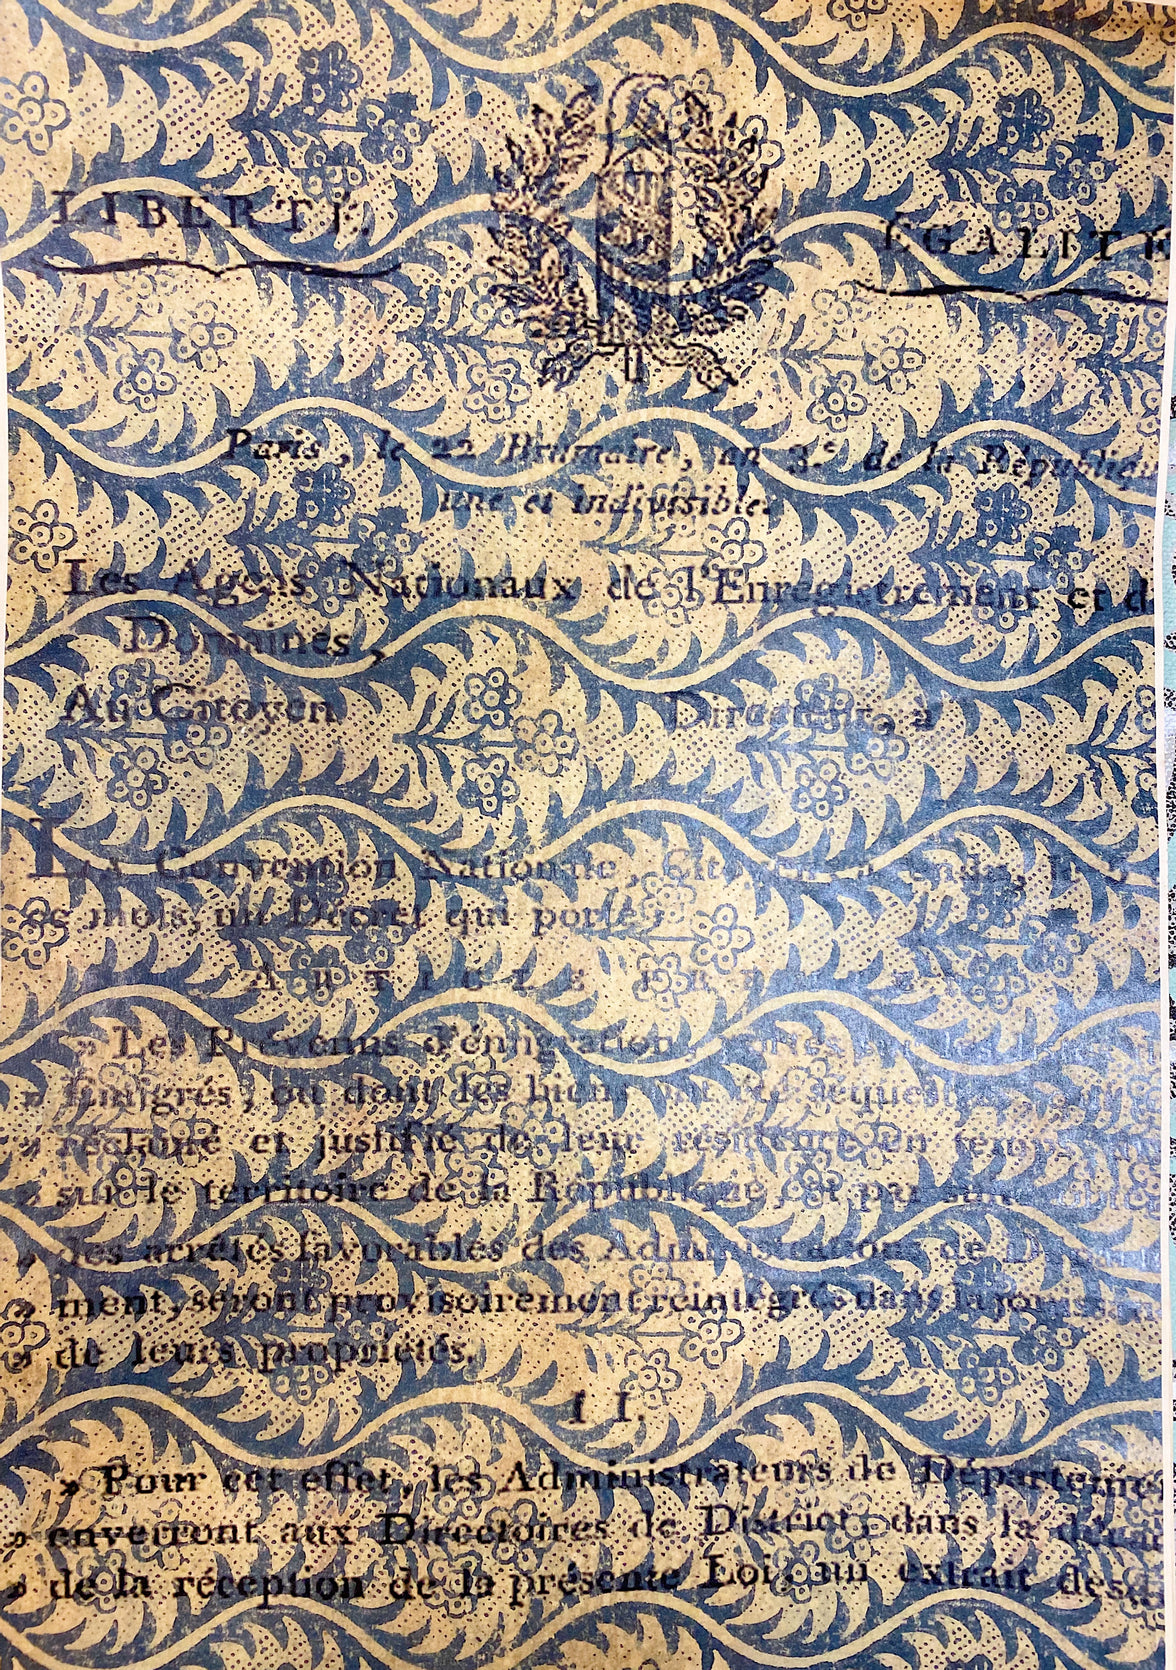 LIBERTÉ. ÉGALITÉ
Paris, le 22 Brumaire, an 3.e de la République
une et indivisible.
Les Agens Nationaux de l'Enregistrement et d
Domaines,
Au Citoyen Directeur, à
LA Convention Nationale, Citoyen, a rendu, le
mois, un Décret qui porte:
ARTICLE PREMIER
» Les Prévenus d'émigration, portés sur les listes
» Émigrés, ou dont les biens ont été séquestrés
» réclamé et justifié de leur résidence en temps
» sur le territoire de la République, et par suite
» des arrêtés favorables des Administrations de Départe
» ment, seront provisoirement réintégrés dans la jouissan
» de leurs propriétés.
II.
» Pour cet effet, les Administrateurs de Départeme
» enverront aux Directoires de District, dans la déca
» de la réception de la présente Loi, un extrait des